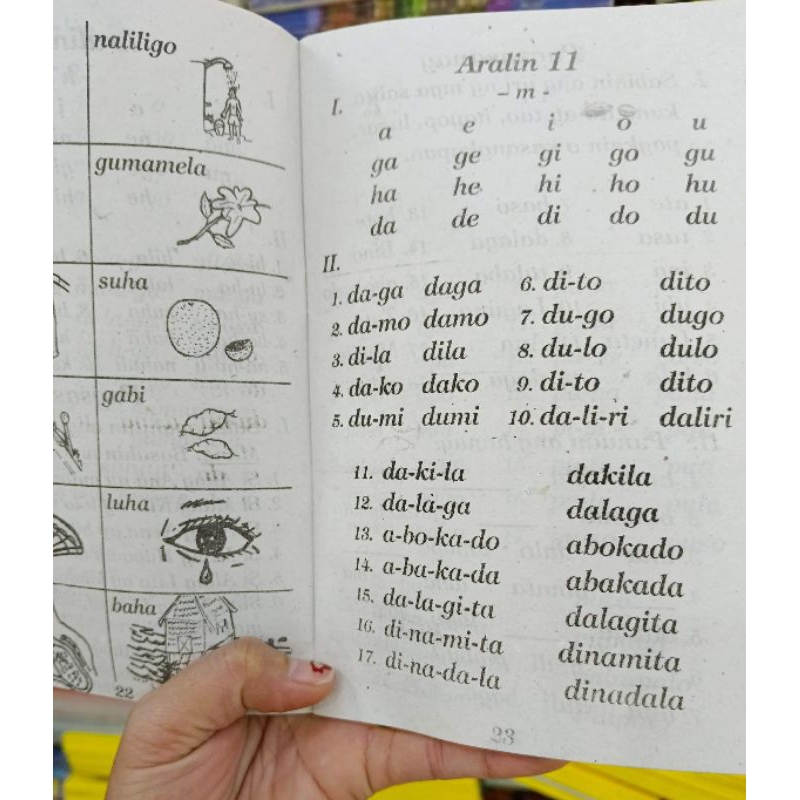 naliligo
gumamela
suha
gabi
luha
baha
22
Aralin 11
- m -
I.
a e i o u
ga ge gi go gu
ha he hi ho hu
da de di do du
II.
1. da-ga daga 6. di-to dito
2. da-mo damo 7. du-go dugo
3. di-la dila 8. du-lo dulo
4. da-ko dako 9. di-to dito
5. du-mi dumi 10. da-li-ri daliri
11. da-ki-la dakila
12. da-la-ga dalaga
13. a-bo-ka-do abokado
14. a-ba-ka-da abakada
15. da-la-gi-ta dalagita
16. di-na-mi-ta dinamita
17. di-na-da-la dinadala
23